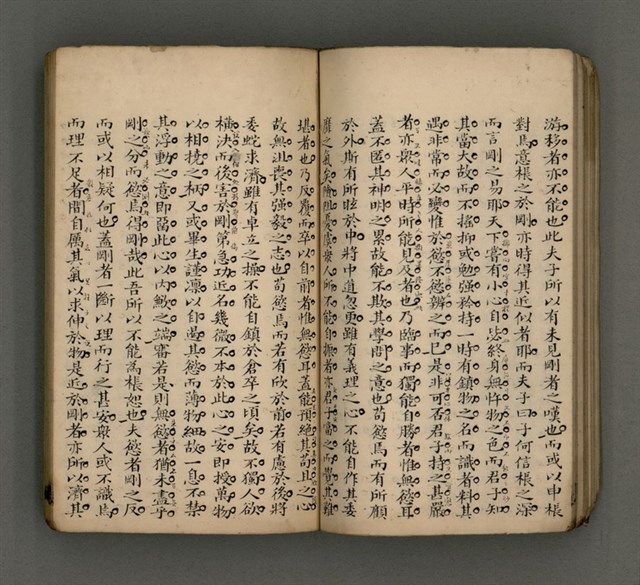 游移者亦不能也此夫子所以有未見剛者之嘆也而或以申棖
對焉意棖之於剛亦時得其近似者耶而夫子曰子何信棖之深
而言剛之易耶天下嘗有小心自毖終身無忤物之色而君子知
其當大故而不搖抑或勉強於持一時有鎮物之名而識者料其
遇非常而必變惟於慾不慾辨之而已是非可否君子持之甚嚴
者亦眾人平時所能見及者也乃臨事而獨能自勝者惟無慾耳
蓋不匿其神明之累故能不欺其學問之意也苟慾焉而有所顧
於外斯有所眩於中將中道忽更雖有義理之心不能自作其委
靡之氣矣險阻憂虞眾人所不能自持者亦君子當之而覺其難
堪者也乃反覆而卒以自前者惟無慾耳蓋能預絕其苟且之心
故無沮喪其強毅之志也苟慾焉而若有欣於前若有慮於後將
委蛇求濟雖有卓立之操不能自鎮於倉卒之頃矣故不獨人欲
橫決而後害於剛第急功近名幾微不本於此心之安即授萬物
以相撓之柄又或畢生謹凜以自過其慾而薄物細故一息不禁
其浮動之意即留此心以內餒之端審若是則無慾者猶未盡乎
剛之分而慾焉得剛哉此吾所以不能為棖恕也夫慾者剛之反
而或以相疑何也蓋剛者一斷以理而行之甚安眾人或不識焉
而理不足者間自厲其氣以求伸於物是近於剛者亦所以濟其